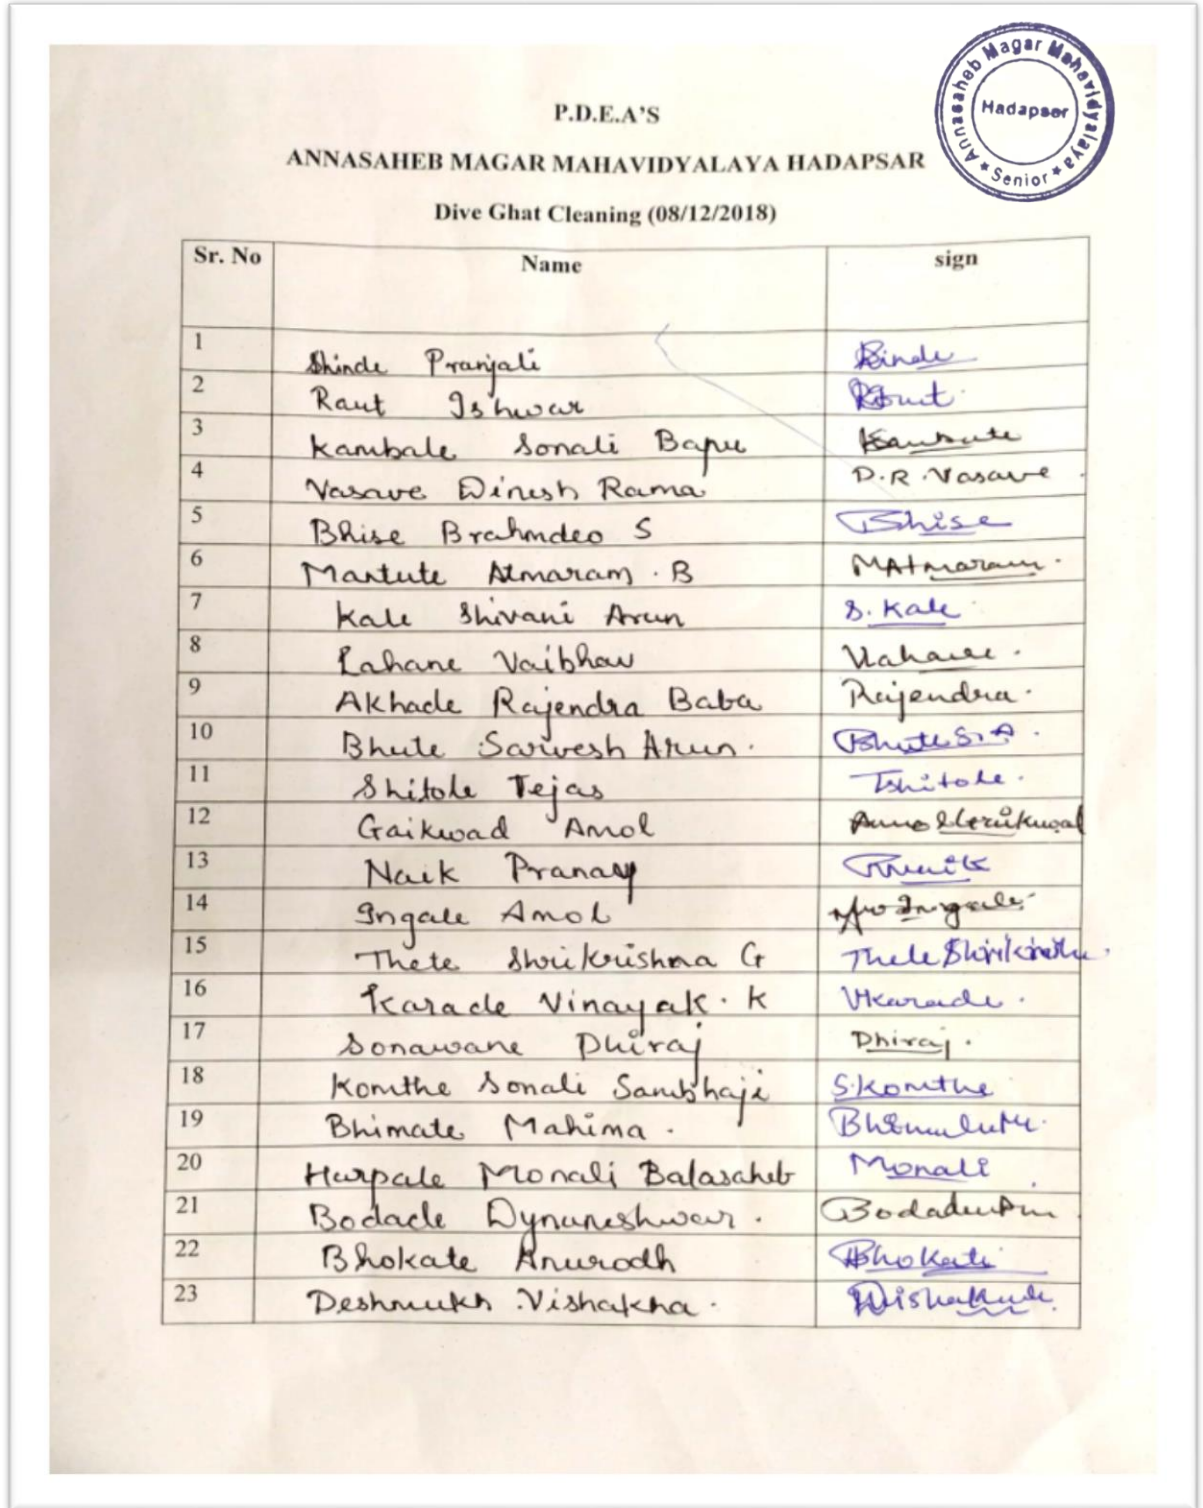 Annasaheb Magar Mahavidyalaya
Hadapsar
★ Senior ★
P.D.E.A'S
ANNASAHEB MAGAR MAHAVIDYALAYA HADAPSAR
Dive Ghat Cleaning (08/12/2018)
Sr. No Name sign
1 Shinde Pranjali
2 Raut Ishwar Raut
3 Kambale Sonali Bapu
4 Vasave Dinesh Rama D.R.Vasave
5 Bhise Brahmdeo S Bhise
6 Mantute Atmaram . B MAtmaram.
7 Kale Shivani Arun S. Kale
8 Lahane Vaibhav
9 Akhade Rajendra Baba Rajendra.
10 Bhute Sarvesh Arun.
11 Shitole Tejas Tshitole.
12 Gaikwad Amol
13 Naik Pranay
14 Ingale Amol
15 Thete Shrikrishna G
16 Karade Vinayak. K Vkarade.
17 Sonawane Dhiraj Dhiraj.
18 Komthe Sonali Sambhaji S.Komthe
19 Bhimate Mahima.
20 Harpale Monali Balasaheb Monali
21 Bodade Dynaneshwar.
22 Bhokate Anurodh
23 Deshmukh .Vishakha.